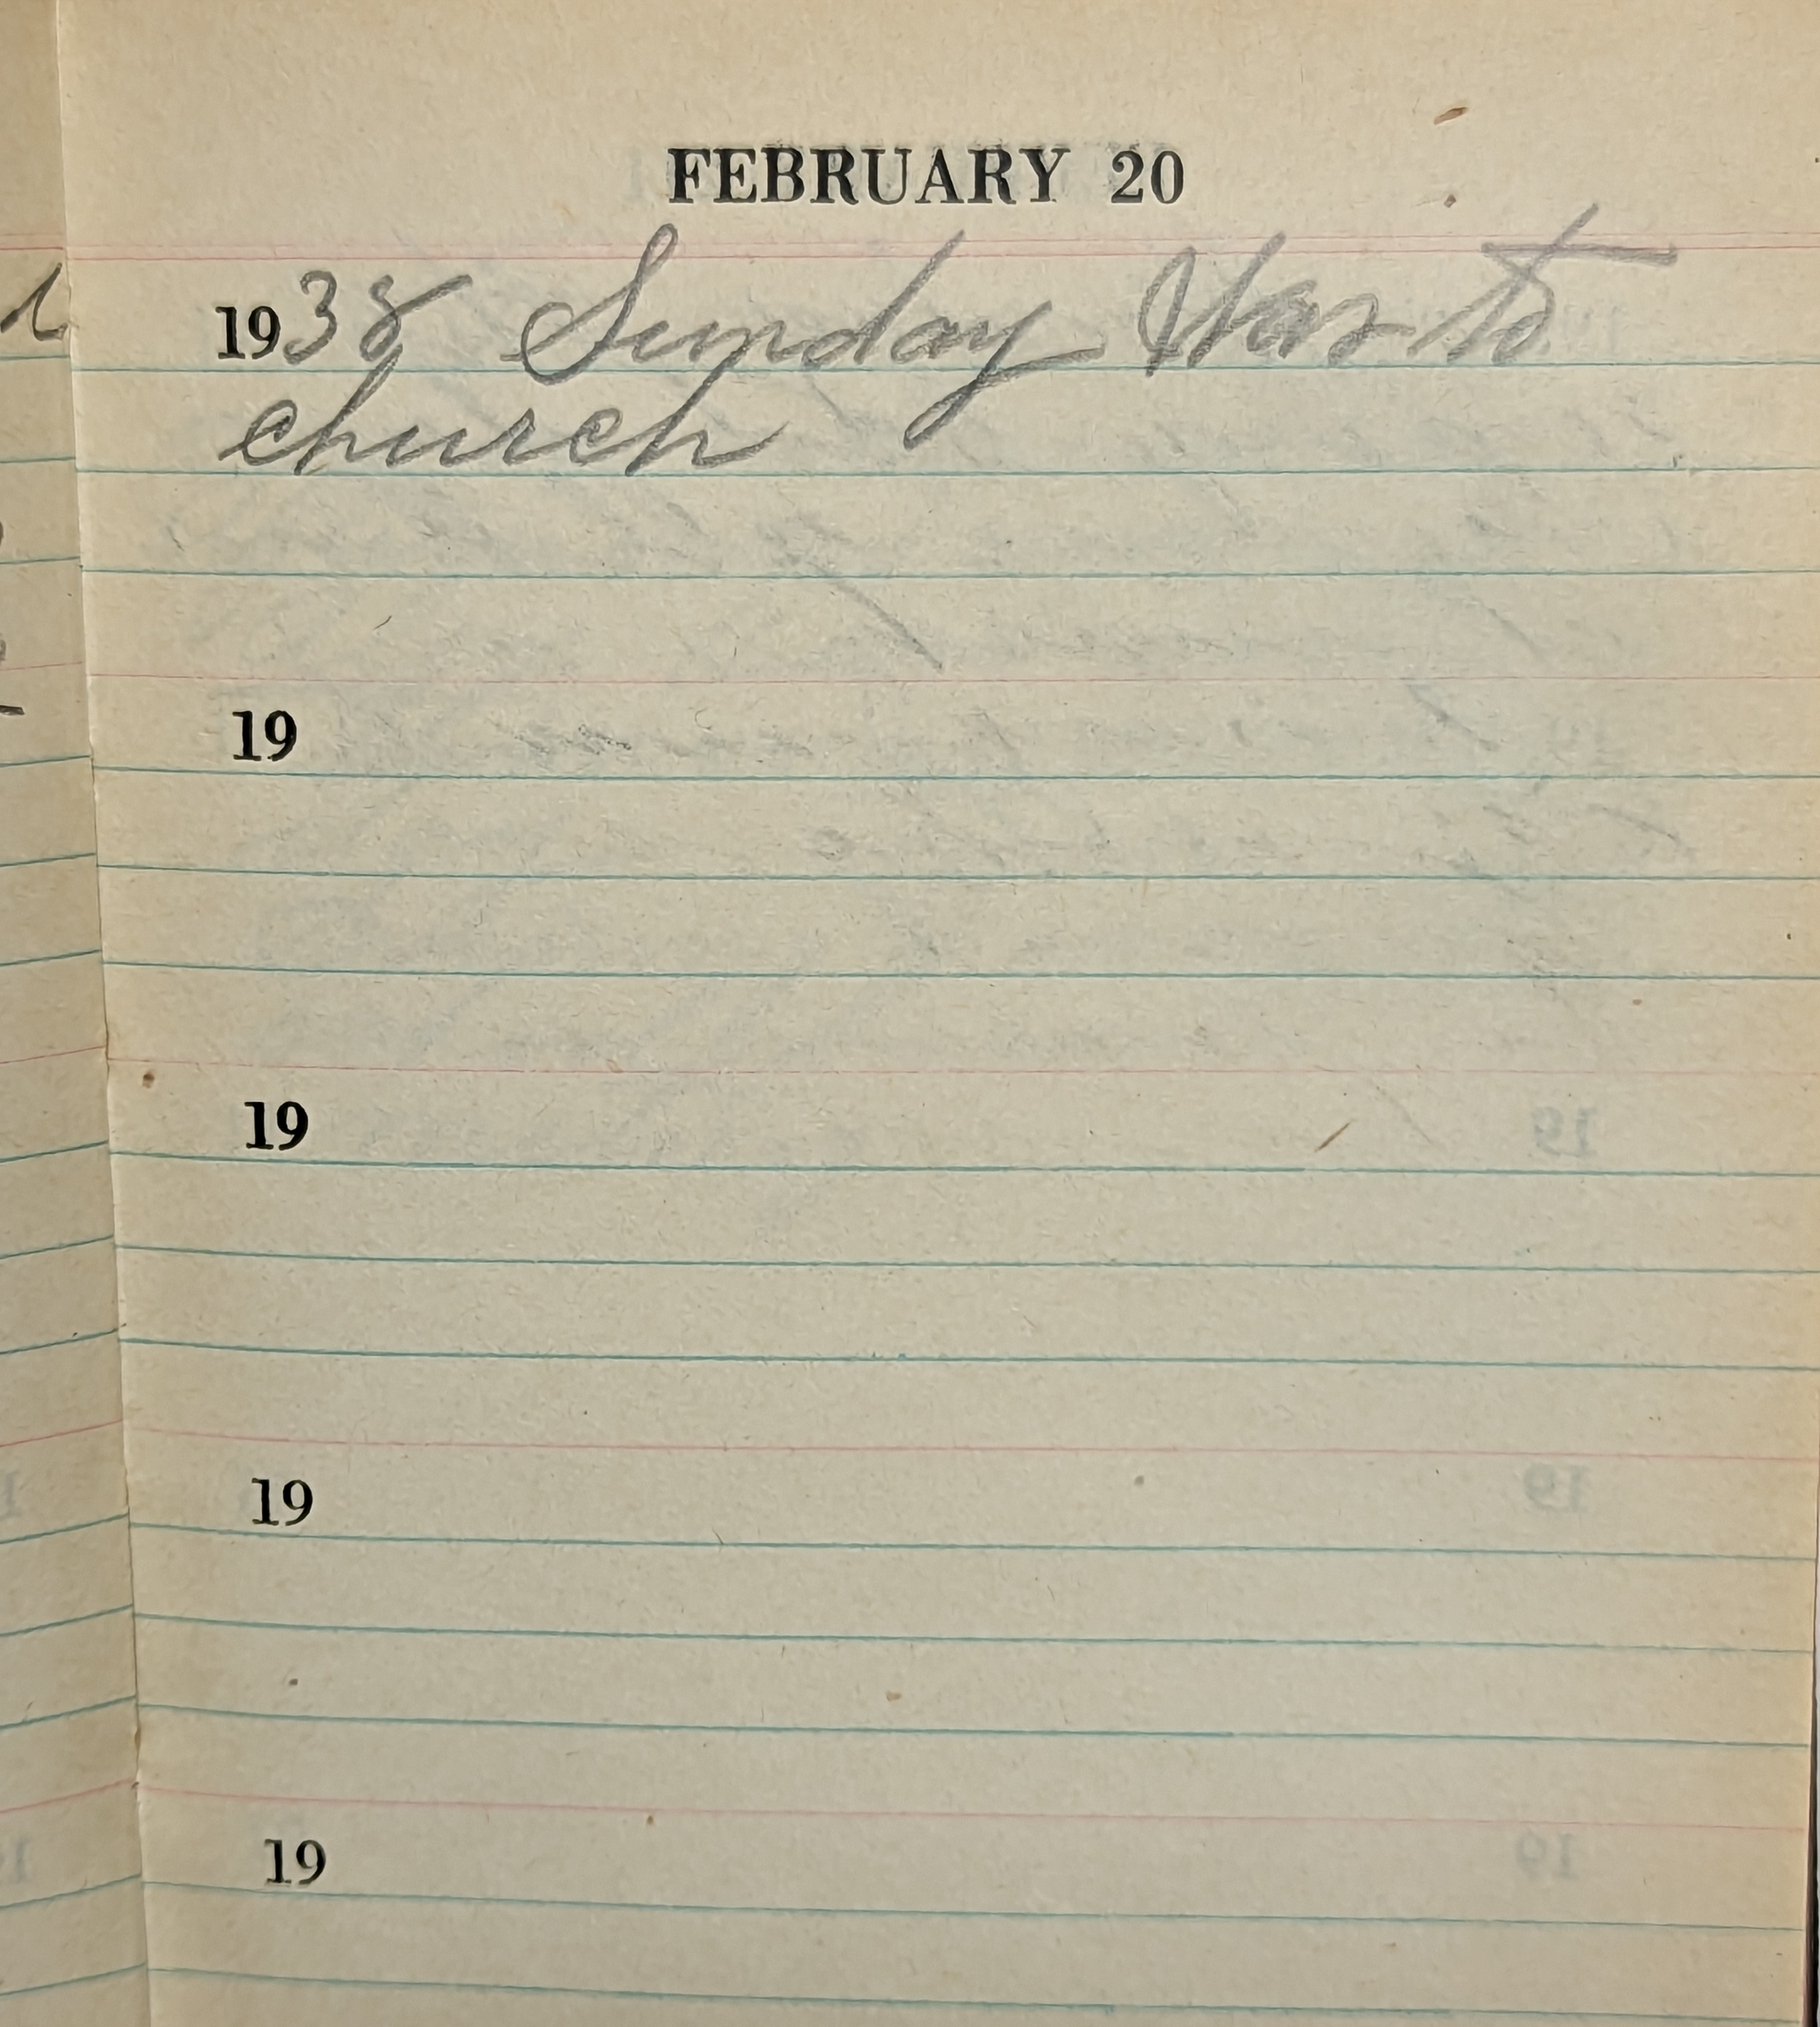 FEBRUARY 20
1938 Sunday Was to
church
19
19
19
19